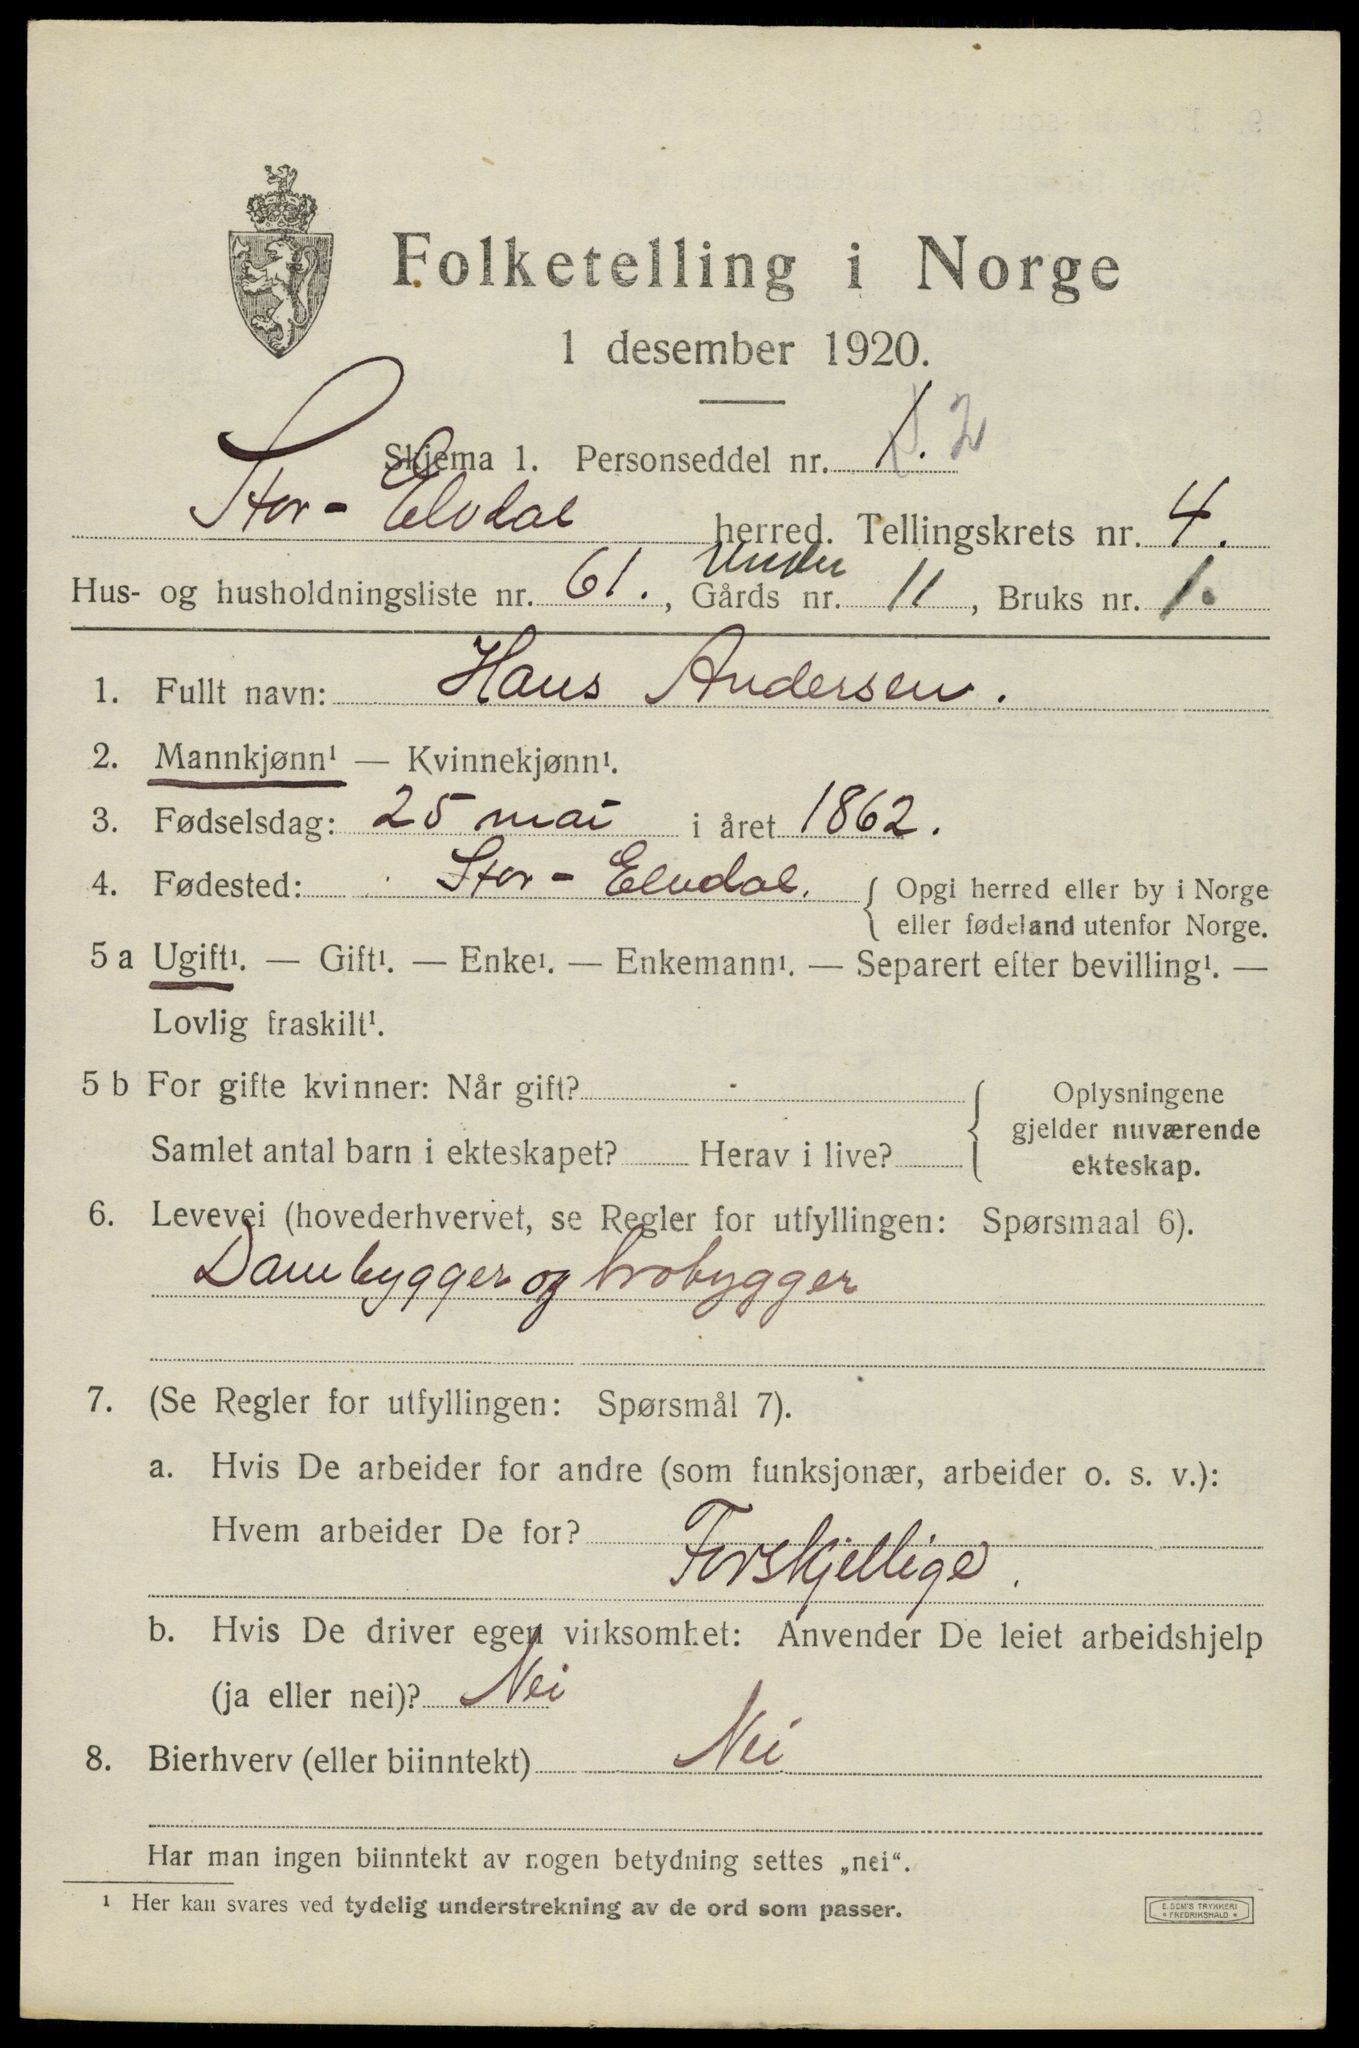 Folketelling i Norge
1 desember 1920.
Skjema 1. Personseddel nr. 1. 2
Stor-Elvdal herred. Tellingskrets nr. 4.
Hus- og husholdningsliste nr. 61., Under Gårds nr. 11, Bruks nr. 1.
1. Fullt navn: Hans Andersen.
2. Mannkjønn¹ — Kvinnekjønn¹.
3. Fødselsdag: 25 mai i året 1862.
4. Fødested: Stor-Elvdal. { Opgi herred eller by i Norge
eller fødeland utenfor Norge.
5 a Ugift¹. — Gift¹. — Enke¹. — Enkemann¹. — Separert efter bevilling¹. —
Lovlig fraskilt¹.
5 b For gifte kvinner: Når gift? { Oplysningene
gjelder nuværende
ekteskap.
Samlet antal barn i ekteskapet? Herav i live?
6. Levevei (hovederhvervet, se Regler for utfyllingen: Spørsmaal 6).
Dambygger og brobygger
7. (Se Regler for utfyllingen: Spørsmål 7).
a. Hvis De arbeider for andre (som funksjonær, arbeider o. s. v.):
Hvem arbeider De for? Forskjellige.
b. Hvis De driver egen virksomhet: Anvender De leiet arbeidshjelp
(ja eller nei)? Nei
8. Bierhverv (eller biinntekt) Nei
Har man ingen biinntekt av nogen betydning settes „nei“.
¹ Her kan svares ved tydelig understrekning av de ord som passer.
E. SEM'S TRYKKERI
* FREDRIKSHALD *